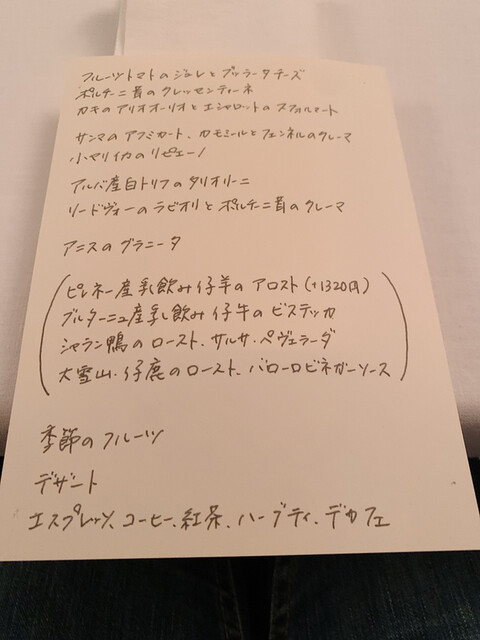 フルーツトマトのジュレとブッラータチーズ
ポルチーニ茸のクレッセンティーネ
カキのアリオオーリオとエシャロットのスフォルマート
サンマのアフミカート、カモミールとフェンネルのクレーマ
小ヤリイカのリピエーノ
アルバ産白トリフのタリオリーニ
リードヴォーのラビオリとポルチーニ茸のクレーマ
アニスのグラニータ
ピレネー産乳飲み仔羊のアロスト(+1320円)
ブルターニュ産乳飲み仔牛のビステッカ
シャラン鴨のロースト、サルサ・ペヴェラーダ
大雪山・仔鹿のロースト、バローロビネガーソース
季節のフルーツ
デザート
エスプレッソ、コーヒー、紅茶、ハーブティ、デカフェ